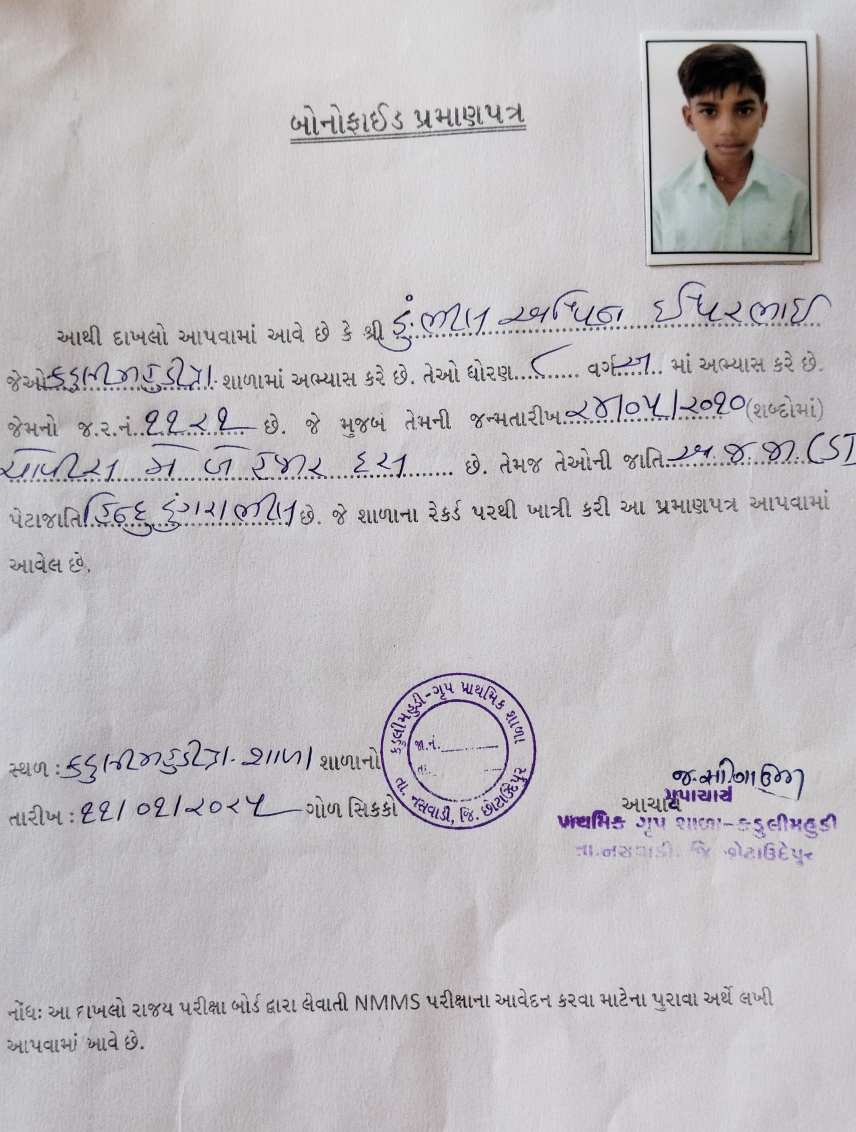 બોનોફાઈડ પ્રમાણપત્ર
આથી દાખલો આપવામાં આવે છે કે શ્રી ડું.ભીલ અશ્વિન ઈશ્વરભાઈ
જેઓ કડુલીમહુડી પ્રા. શાળામાં અભ્યાસ કરે છે. તેઓ ધોરણ....૮...... વર્ગ...અ.. માં અભ્યાસ કરે છે.
જેમનો જ.ર.નં..૧૧૨૧ છે. જે મુજબ તેમની જન્મતારીખ ૨૪/૦૫/૨૦૧૦ (શબ્દોમાં)
ચોવીસ મે બે હજાર દસ છે. તેમજ તેઓની જાતિ અ.જ.જા. (ST
પેટાજાતિ હિન્દુ ડુંગરાભીલ છે. જે શાળાના રેકર્ડ પરથી ખાત્રી કરી આ પ્રમાણપત્ર આપવામાં
આવેલ છે.
કડુલીમહુડી-ગૃપ પ્રાથમિક શાળા
જા.નં.
તા:
તા. નસવાડી, જિ. છોટાઉદેપુર
સ્થળ : કડુલીમહુડી પ્રા. શાળા શાળાનો
તારીખ : ૧૧/૦૧/૨૦૨૫ ગોળ સિક્કો
આચાર્ય
પ્રાથમિક ગૃપ શાળા-કડુલીમહુડી
તા.નસવાડી. જિ છોટાઉદેપુર
નોંધઃ આ દાખલો રાજ્ય પરીક્ષા બોર્ડ દ્વારા લેવાતી NMMS પરીક્ષાના આવેદન કરવા માટેના પુરાવા અર્થે લખી
આપવામાં આવે છે.